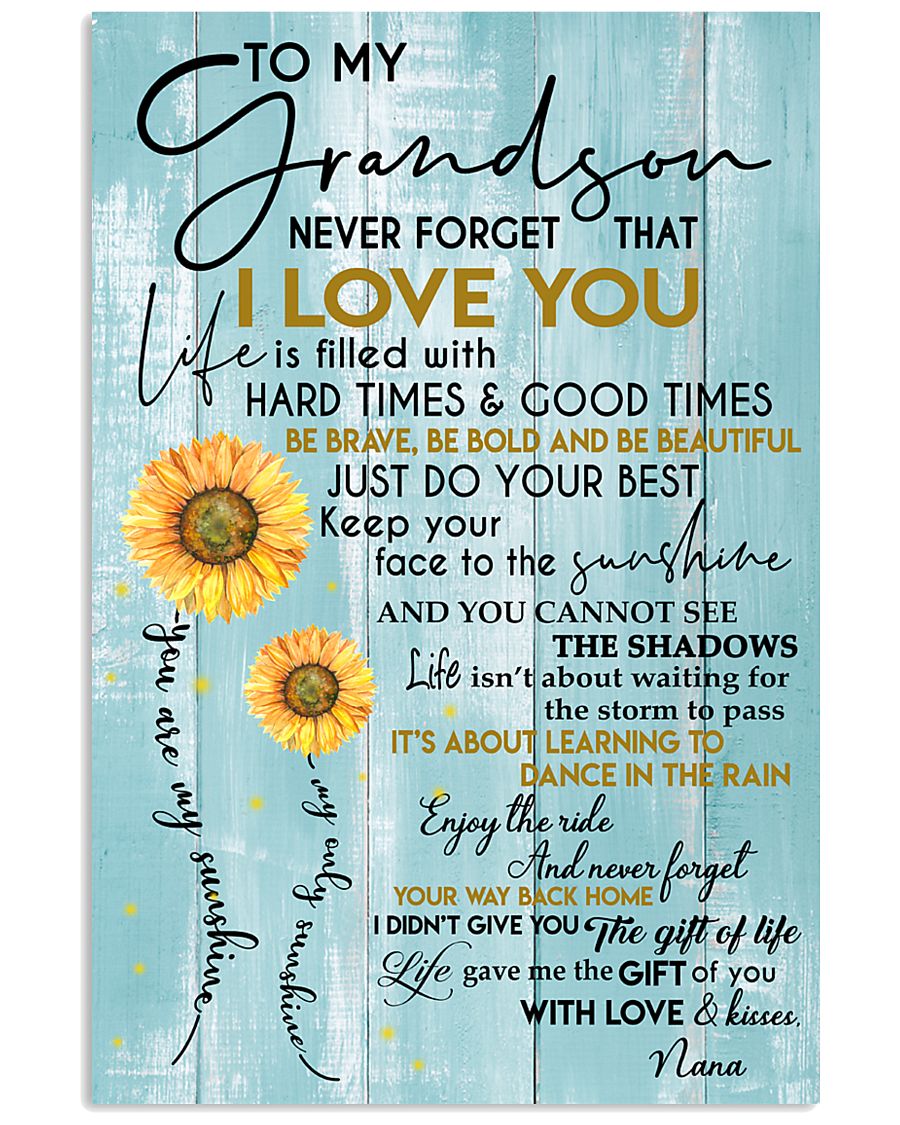 TO MY
Grandson
NEVER FORGET THAT
I LOVE YOU
Life is filled with
HARD TIMES & GOOD TIMES
BE BRAVE, BE BOLD AND BE BEAUTIFUL
JUST DO YOUR BEST
Keep your
face to the sunshine
AND YOU CANNOT SEE
THE SHADOWS
Life isn't about waiting for
the storm to pass
IT'S ABOUT LEARNING TO
DANCE IN THE RAIN
Enjoy the ride
And never forget
YOUR WAY BACK HOME
I DIDN'T GIVE YOU The gift of life
Life gave me the GIFT of you
WITH LOVE & kisses,
Nana
you are my sunshine
my only sunshine